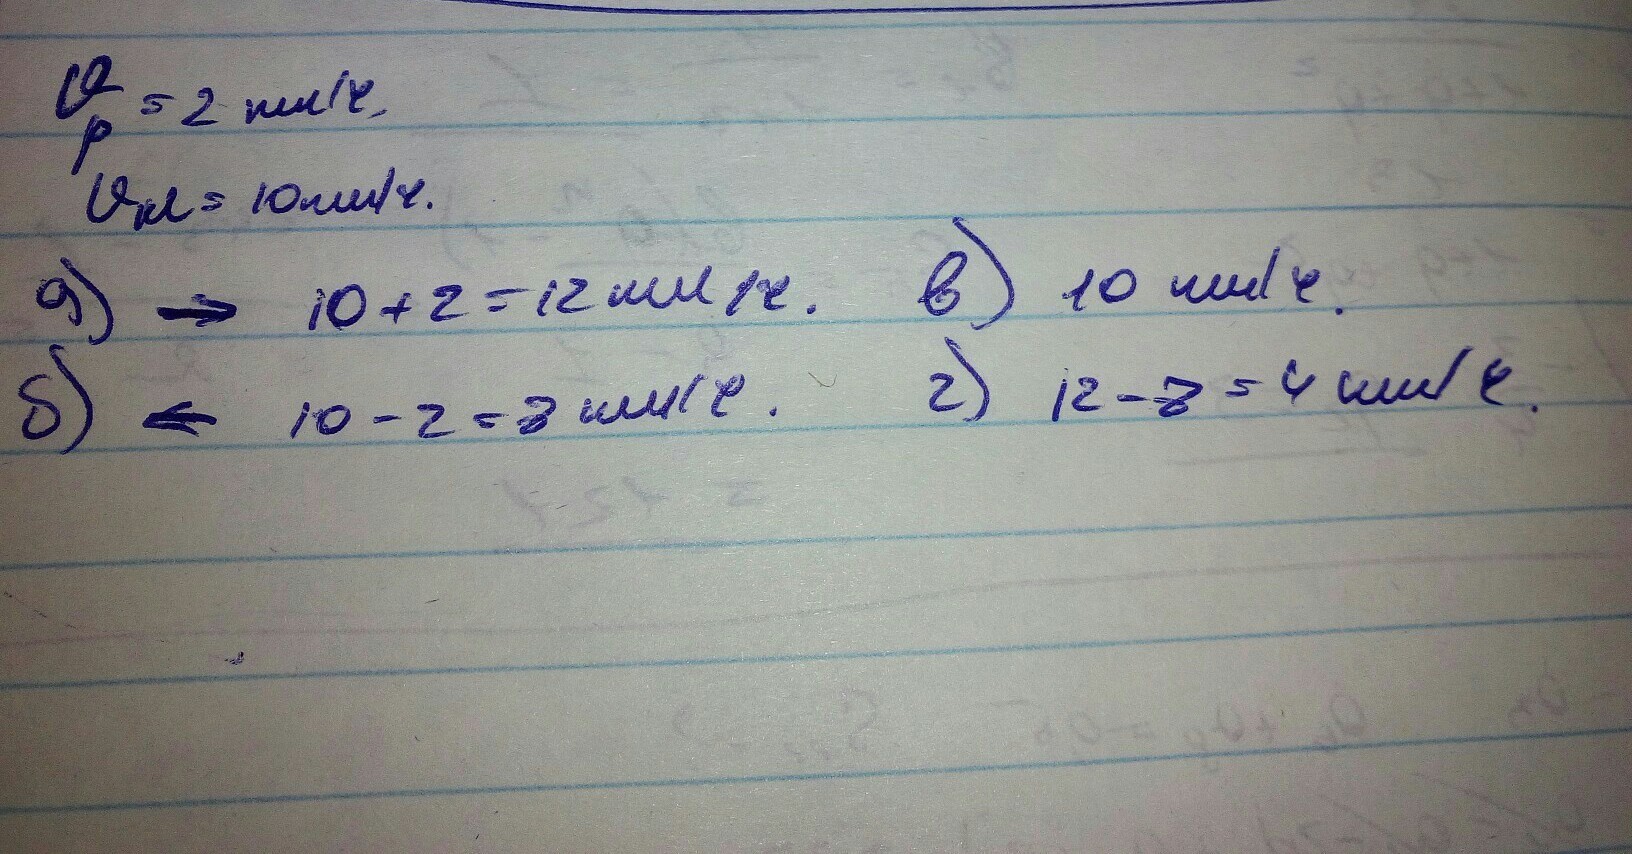 υр = 2 км/ч.
υкл = 10 км/ч.
а) → 10 + 2 = 12 км/ч.
б) ← 10 - 2 = 8 км/ч.
в) 10 км/ч.
г) 12 - 8 = 4 км/ч.